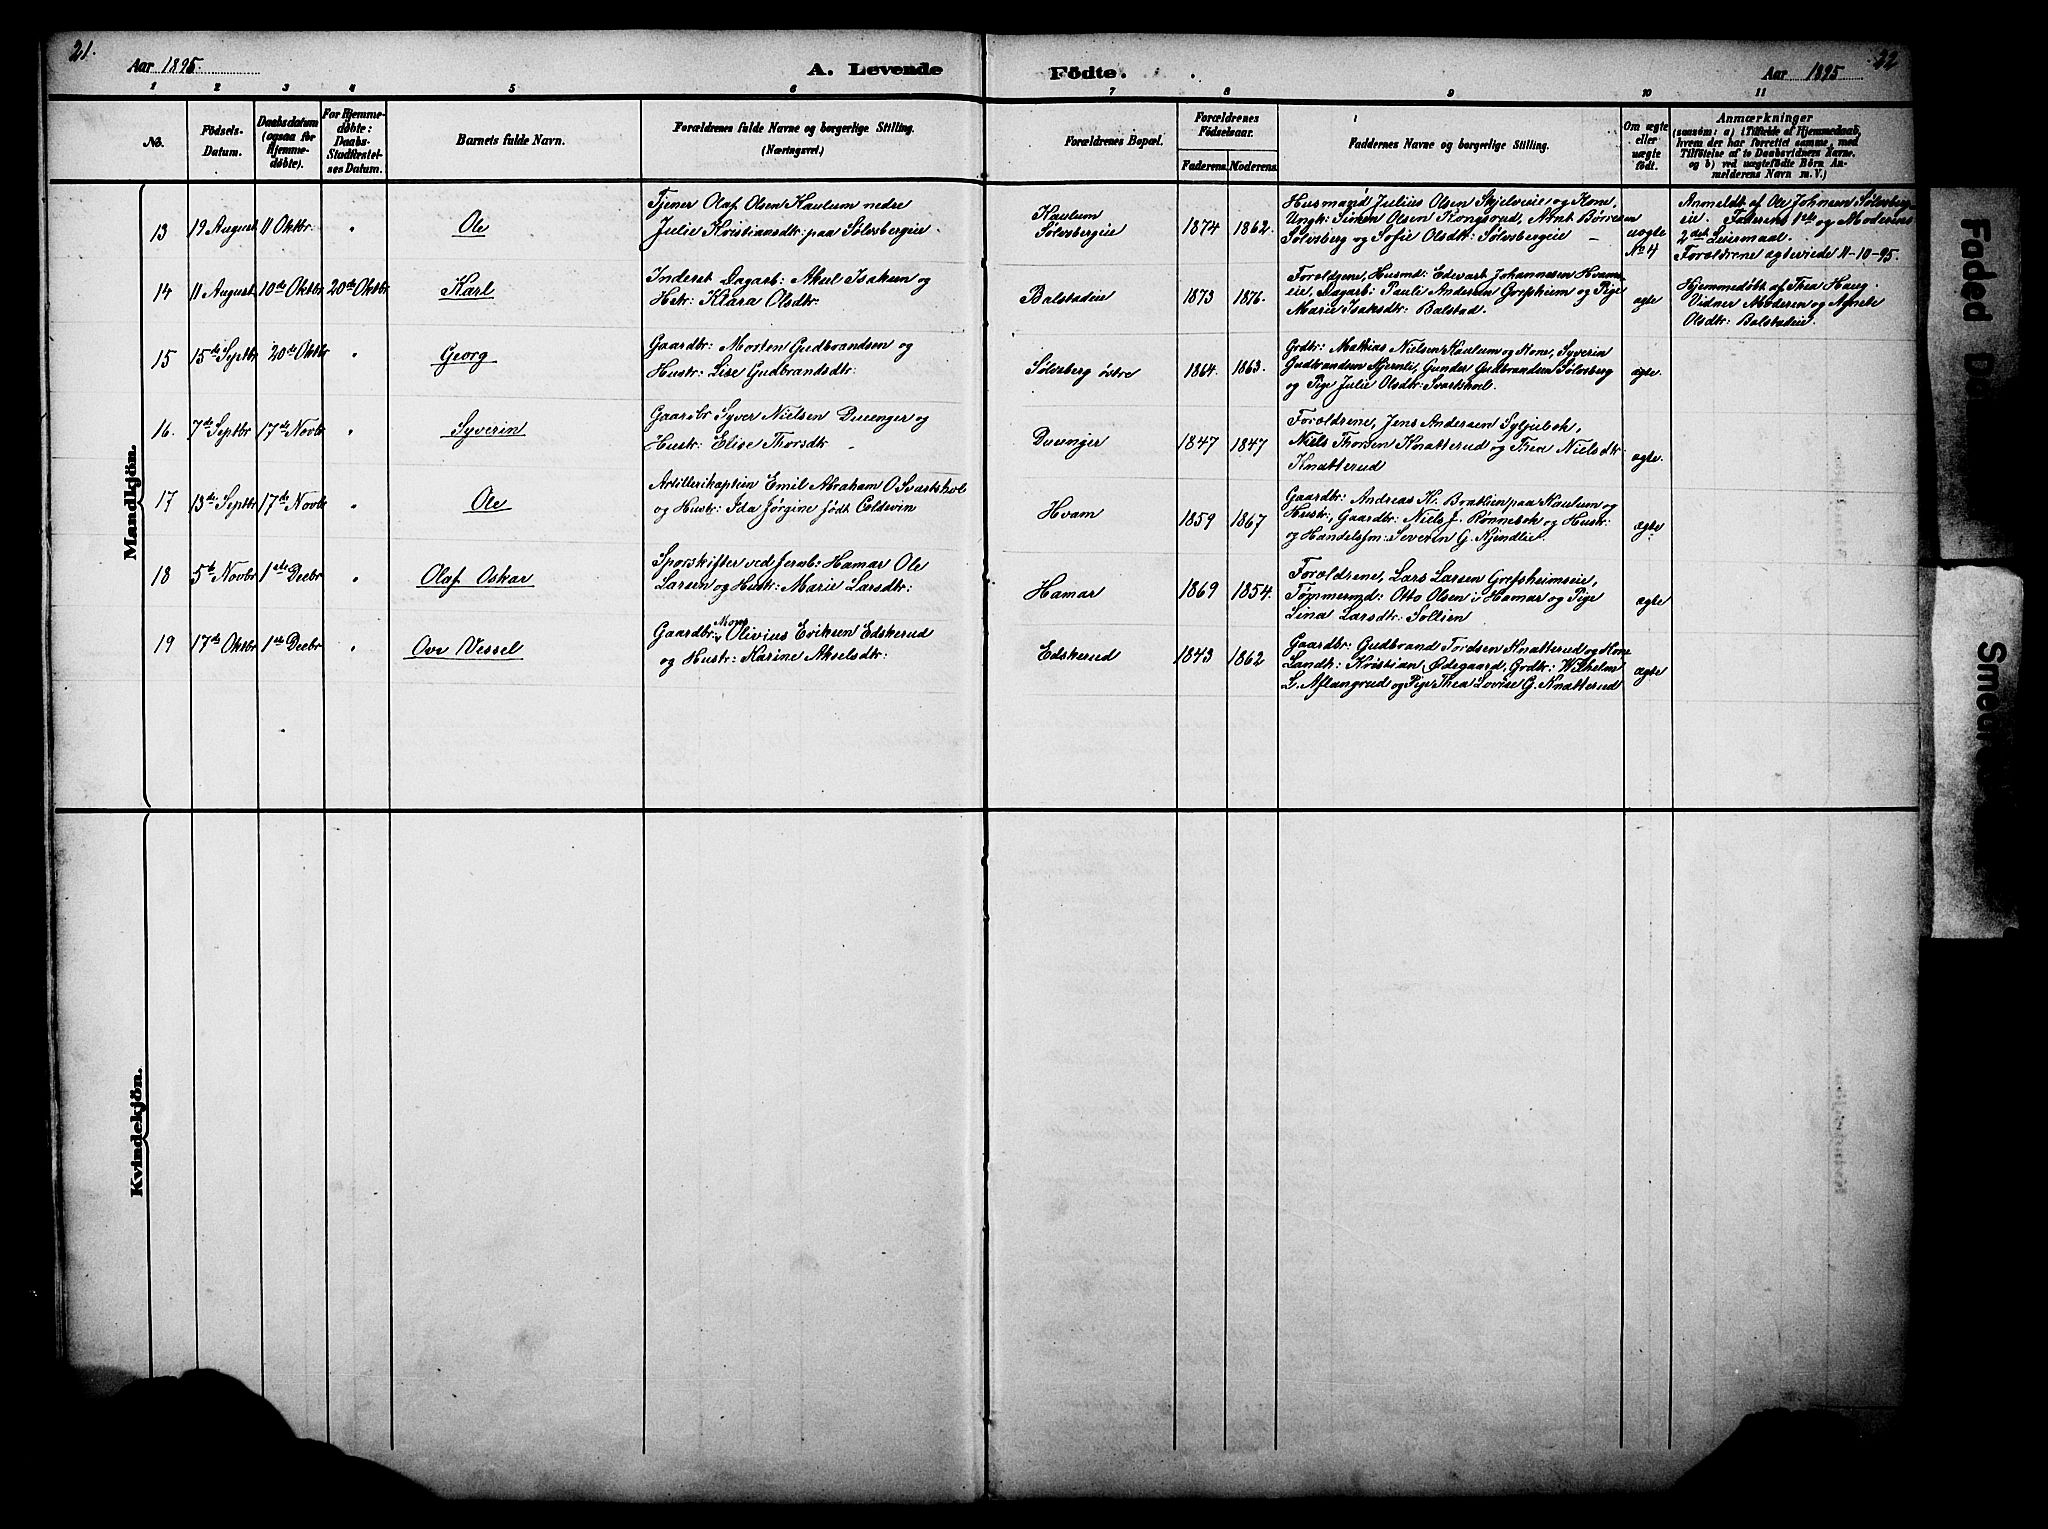 21.
Aar 1895.
A. Levende
Födte.
Aar 1895
22
1 2 3 4 5 6 7 8 9 10 11
No.
Födsels-
Datum.
Daabsdatum
(ogsaa for
Hjemme-
døbte).
For Hjemme-
døbte:
Daabs-
Stadfæstel-
ses Datum.
Barnets fulde Navn.
Forældrenes fulde Navne og borgerlige Stilling.
(Næringsvei.)
Forældrenes Bopæl.
Forældrenes
Födselsaar.
Faderens. Moderens.
Faddernes Navne og borgerlige Stilling.
Om ægte
eller
uægte
födt.
Anmærkninger
(saasom: a) i Tilfælde af Hjemmedaab,
hvem der har forrettet samme, med
Tilföielse af to Daabsvidners Navne,
og b) ved uægtefödte Börn An-
melderens Navn m. V.)
Mandkjön.
13 19 August 11 Oktbr. " Ole
Tjener Olaf Olsen Kaulum nedre
Julie Kristiansdtr: paa Sølvsbergeie
Kaulum
Sølvsbergeie
1874 1862.
Husmand Julius Olsen Skjelveeie og Kone,
Ungk: Simen Olsen Kongsrud, Arnt Børresen
Sølvsberg og Sofie Olsdtr: Sølvsbergeie
uægte
No 4
Anmeldt af Ole Johnsen Sølvsberg-
eie. Faderens 1ste og Moderens
2det Leiermaal.
Forældrene ægteviede 11-10-95.
14 11 August 10de Oktbr 20de Oktbr Karl
Inderst Dagarb: Aksel Isaksen og
Hstr: Klara Olsdtr:
Balstadeie
1873 1876.
Forældrene, Husmd: Edevart Johannesen Hvams-
eie, Dagarb: Pauli Andersen Grefsheim og Pige
Marie Isaksdtr: Balstad.
ægte
Hjemmedøbt af Thea Haug.
Vidner Moderen og Agnete
Olsdtr: Balstadeie.
15 15de Septbr 20de Oktbr " Georg
Gaardbr: Morten Gudbrandsen og
Hustr: Lise Gudbrandsdtr:
Sølvsberg østre
1864. 1863.
Grdbr: Mathias Nielsen Kaulum og Kone, Syverin
Gudbrandsen Hjernli, Gunder Gudbrandsen Sølvsberg
og Pige Julie Olsdtr: Svartshol.
ægte.
16. 7de Septbr 17de Novbr " Syverin
Gaardbr Syver Nielsen Duenger og
Hustr: Elise Thorsdtr
Duenger
1847 1847
Forældrene, Jens Andersen Syljubok,
Niels Thorsen Knatterud og Thea Nielsdtr
Knatterud
ægte.
17 13de Septbr 17de Novbr " Ole
Artillerikaptein Emil Abraham O Svartshol
og Hustr: Ida Jørgine født Coldevin
Hvam
1859 1867
Gaardbr: Andreas K. Brattlien paa Kaulum og
Hustr:, Gaardbr: Niels J. Rønnebok og Hustr:
og Handelsfm: Severin G. Kjendlie
Ægte
18 5te Novbr 1ste Decbr " Olaf Oskar
Sporskifter ved Jernb: Hamar Ole
Larsen og Hustr: Marie Larsdtr:
Hamar
1869 1854.
Forældrene, Lars Larsen Grefsheimseie,
Tømmermd: Otto Olsen i Hamar og Pige
Lina Larsdtr: Sollien
ægte
19 17de Oktbr 1ste Decbr " Ove Vessel
Gaardbr: Olivius Eriksen Edskerud
og Hustr: Karine Akselsdtr:
Edskerud
1843 1862
Gaardbr: Gudbrand Tordsen Knatterud og Kone
Landh: Kristian Ødegaard, Grdbr: Wilhelm
L. Aflangrud og Pige Thea Lovise G. Knatterud
ægte
Kvindekjön.
Faded